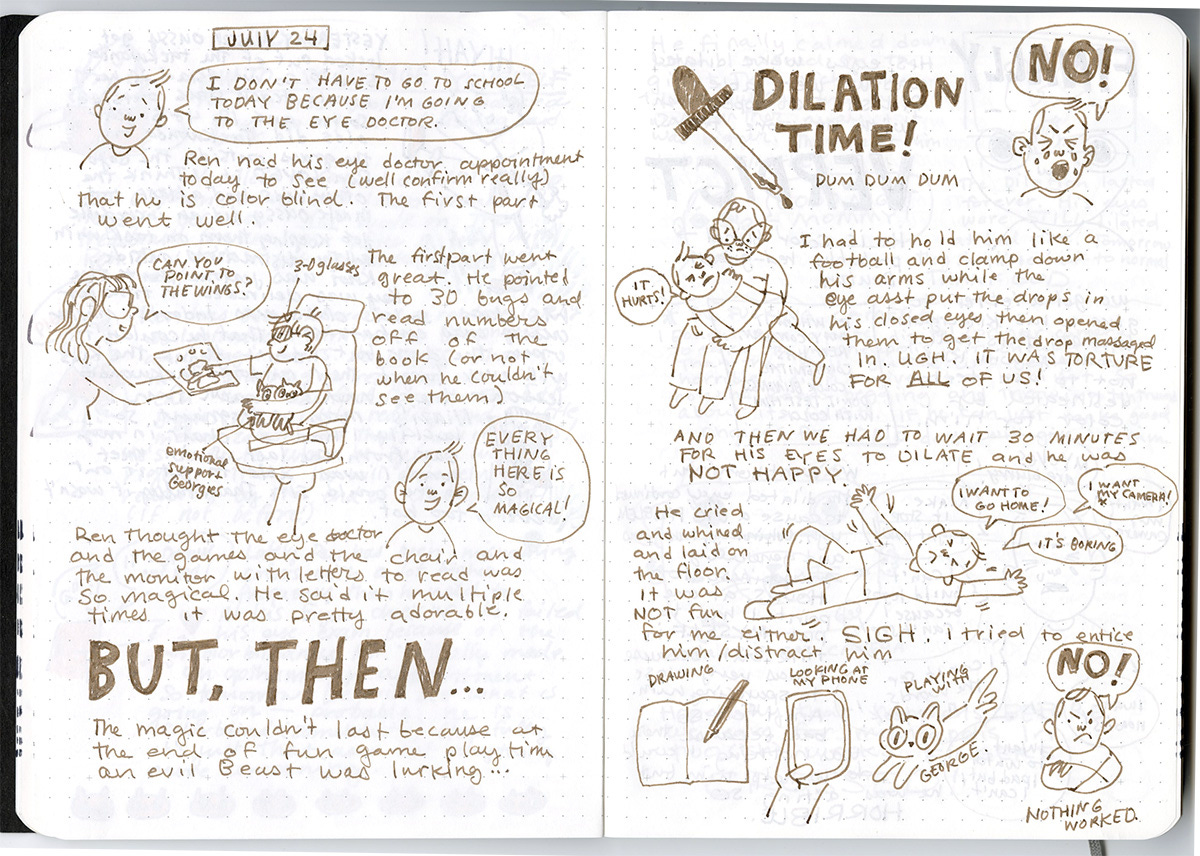 JULY 24
I DON'T HAVE TO GO TO SCHOOL
TODAY BECAUSE I'M GOING
TO THE EYE DOCTOR.
Ren had his eye doctor appointment
today to see (well confirm really)
that he is color blind. The first part
went well.
CAN YOU
POINT TO
THE WINGS?
3-D glasses
The first part went
great. He pointed
to 3D bugs and
read numbers
off of the
book (or not
when he couldn't
see them)
emotional
support
Georgies
EVERY
THING
HERE IS
SO
MAGICAL!
Ren thought the eye doctor
and the games and the chair and
the monitor with letters to read was
so magical. He said it multiple
times it was pretty adorable.
BUT, THEN...
The magic couldn't last because at
the end of fun game play time
an evil Beast was lurking...
DILATION
TIME!
DUM DUM DUM
NO!
IT
HURTS!
I had to hold him like a
football and clamp down
his arms while the
eye asst put the drops in
his closed eyes then opened
them to get the drop massaged
in. UGH. IT WAS TORTURE
FOR ALL OF US!
AND THEN WE HAD TO WAIT 30 MINUTES
FOR HIS EYES TO DILATE and he was
NOT HAPPY.
He cried
and whined
and laid on
the floor.
It was
NOT fun
for me either. SIGH. I tried to entice
him/distract him
I WANT TO
GO HOME!
I WANT
MY CAMERA!
IT'S BORING
DRAWING
LOOKING AT
MY PHONE
PLAYING
WITH
GEORGE.
NO!
NOTHING
WORKED.